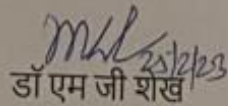 25/2/23
डॉ एम जी शेख